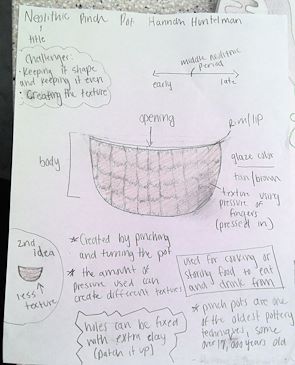 Neolithic Pinch Pot Hannah Huntelman
title
Challenges:
• Keeping it shape
and keeping it even
• Creating the texture
middle neolithic
period
early
late
opening
rim/lip
body
glaze color
tan/brown
texture using
pressure of
fingers
(pressed in)
2nd
idea
less
texture
* Created by pinching
and turning the pot
* the amount of
pressure used can
create different textures
used for cooking or
storing food to eat
and drink from
holes can be fixed
with extra clay
(patch it up)
* pinch pots are one
of the oldest pottery
techniques, some
years old